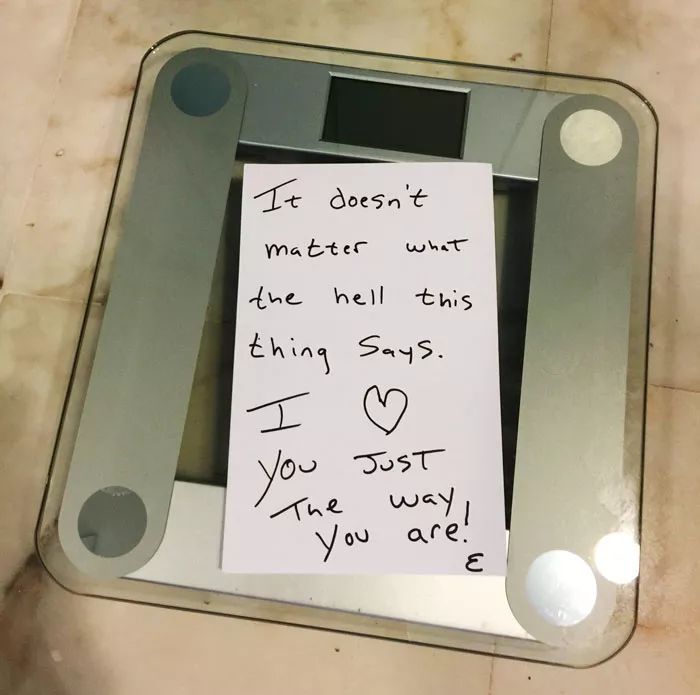 It doesn't
matter what
the hell this
thing says.
I ♡
you JUST
The way
you are!
ε